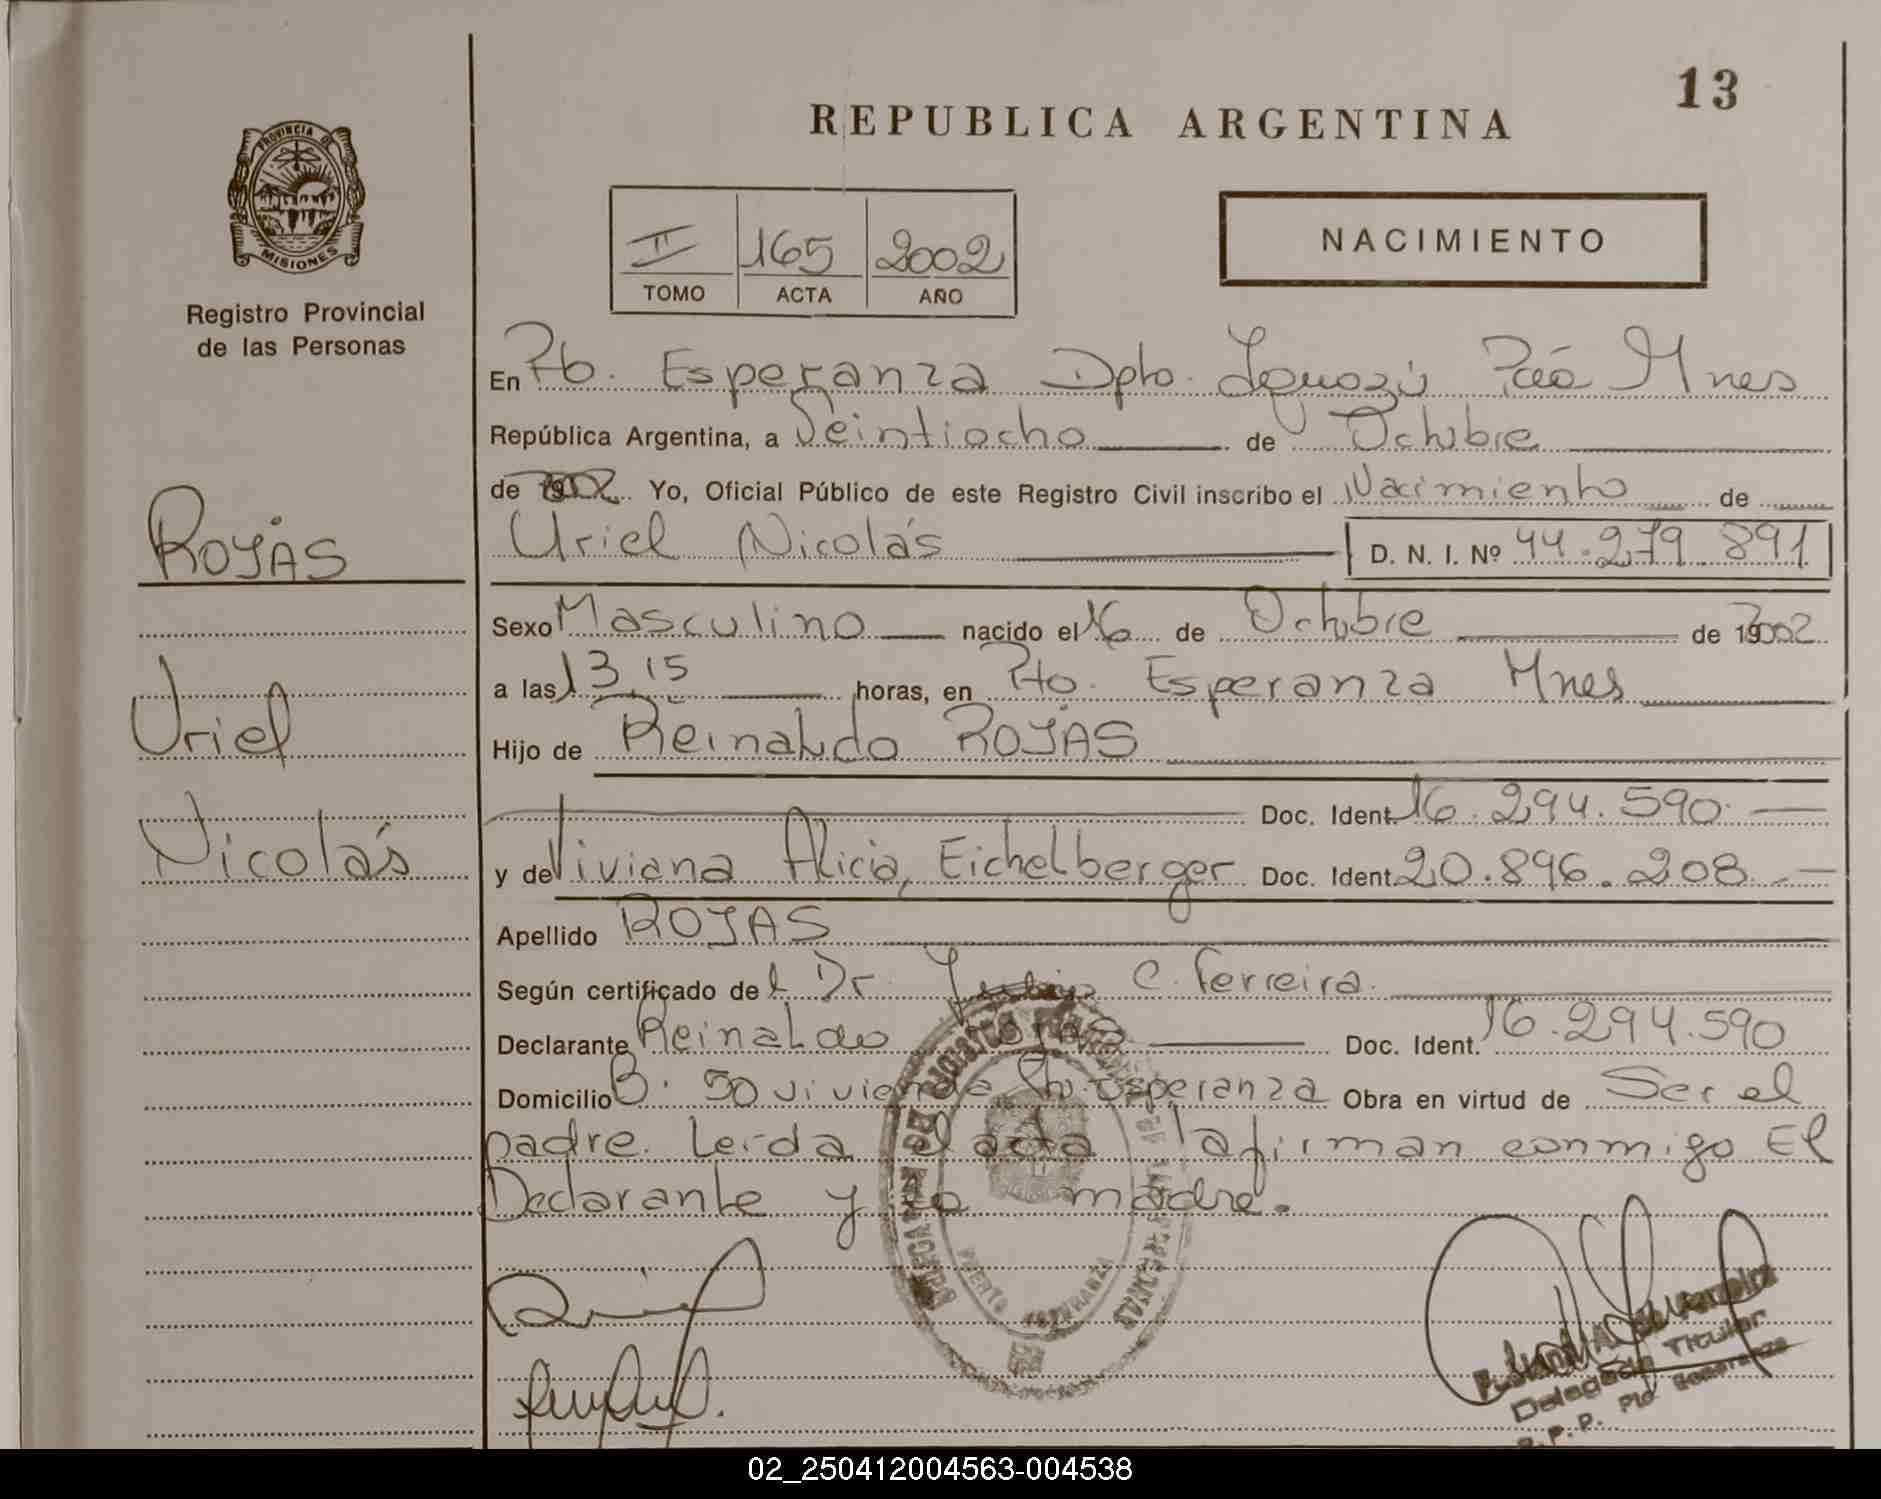 13
REPUBLICA ARGENTINA
PROVINCIA DE
MISIONES
Registro Provincial
de las Personas
II 165 2002
TOMO ACTA AÑO
NACIMIENTO
En Pto. Esperanza Dpto. Iguazú Pcia Mnes
República Argentina, a Veintiocho de Octubre
de 2002 Yo, Oficial Público de este Registro Civil inscribo el Nacimiento de
ROJAS
Uriel Nicolás D. N. I. Nº 44.279.891
Sexo Masculino nacido el 16 de Octubre de 2002
a las 13,15 horas, en Pto. Esperanza Mnes
Uriel
Hijo de Reinaldo ROJAS
Doc. Ident. 16.294.590.
Nicolás
y de Viviana Alicia, Eichelberger Doc. Ident. 20.896.208.
Apellido ROJAS
Según certificado del Dr. C. Ferreira.
Declarante Reinaldo Rojas Doc. Ident. 16.294.590
Domicilio B. 50 viviendas Pto. Esperanza Obra en virtud de Ser el
padre. Leída el acta la firman conmigo El
Declarante y la madre.
PUERTO ESPERANZA
Delegada Titular
R.P.P. Pto Esperanza
02_250412004563-004538